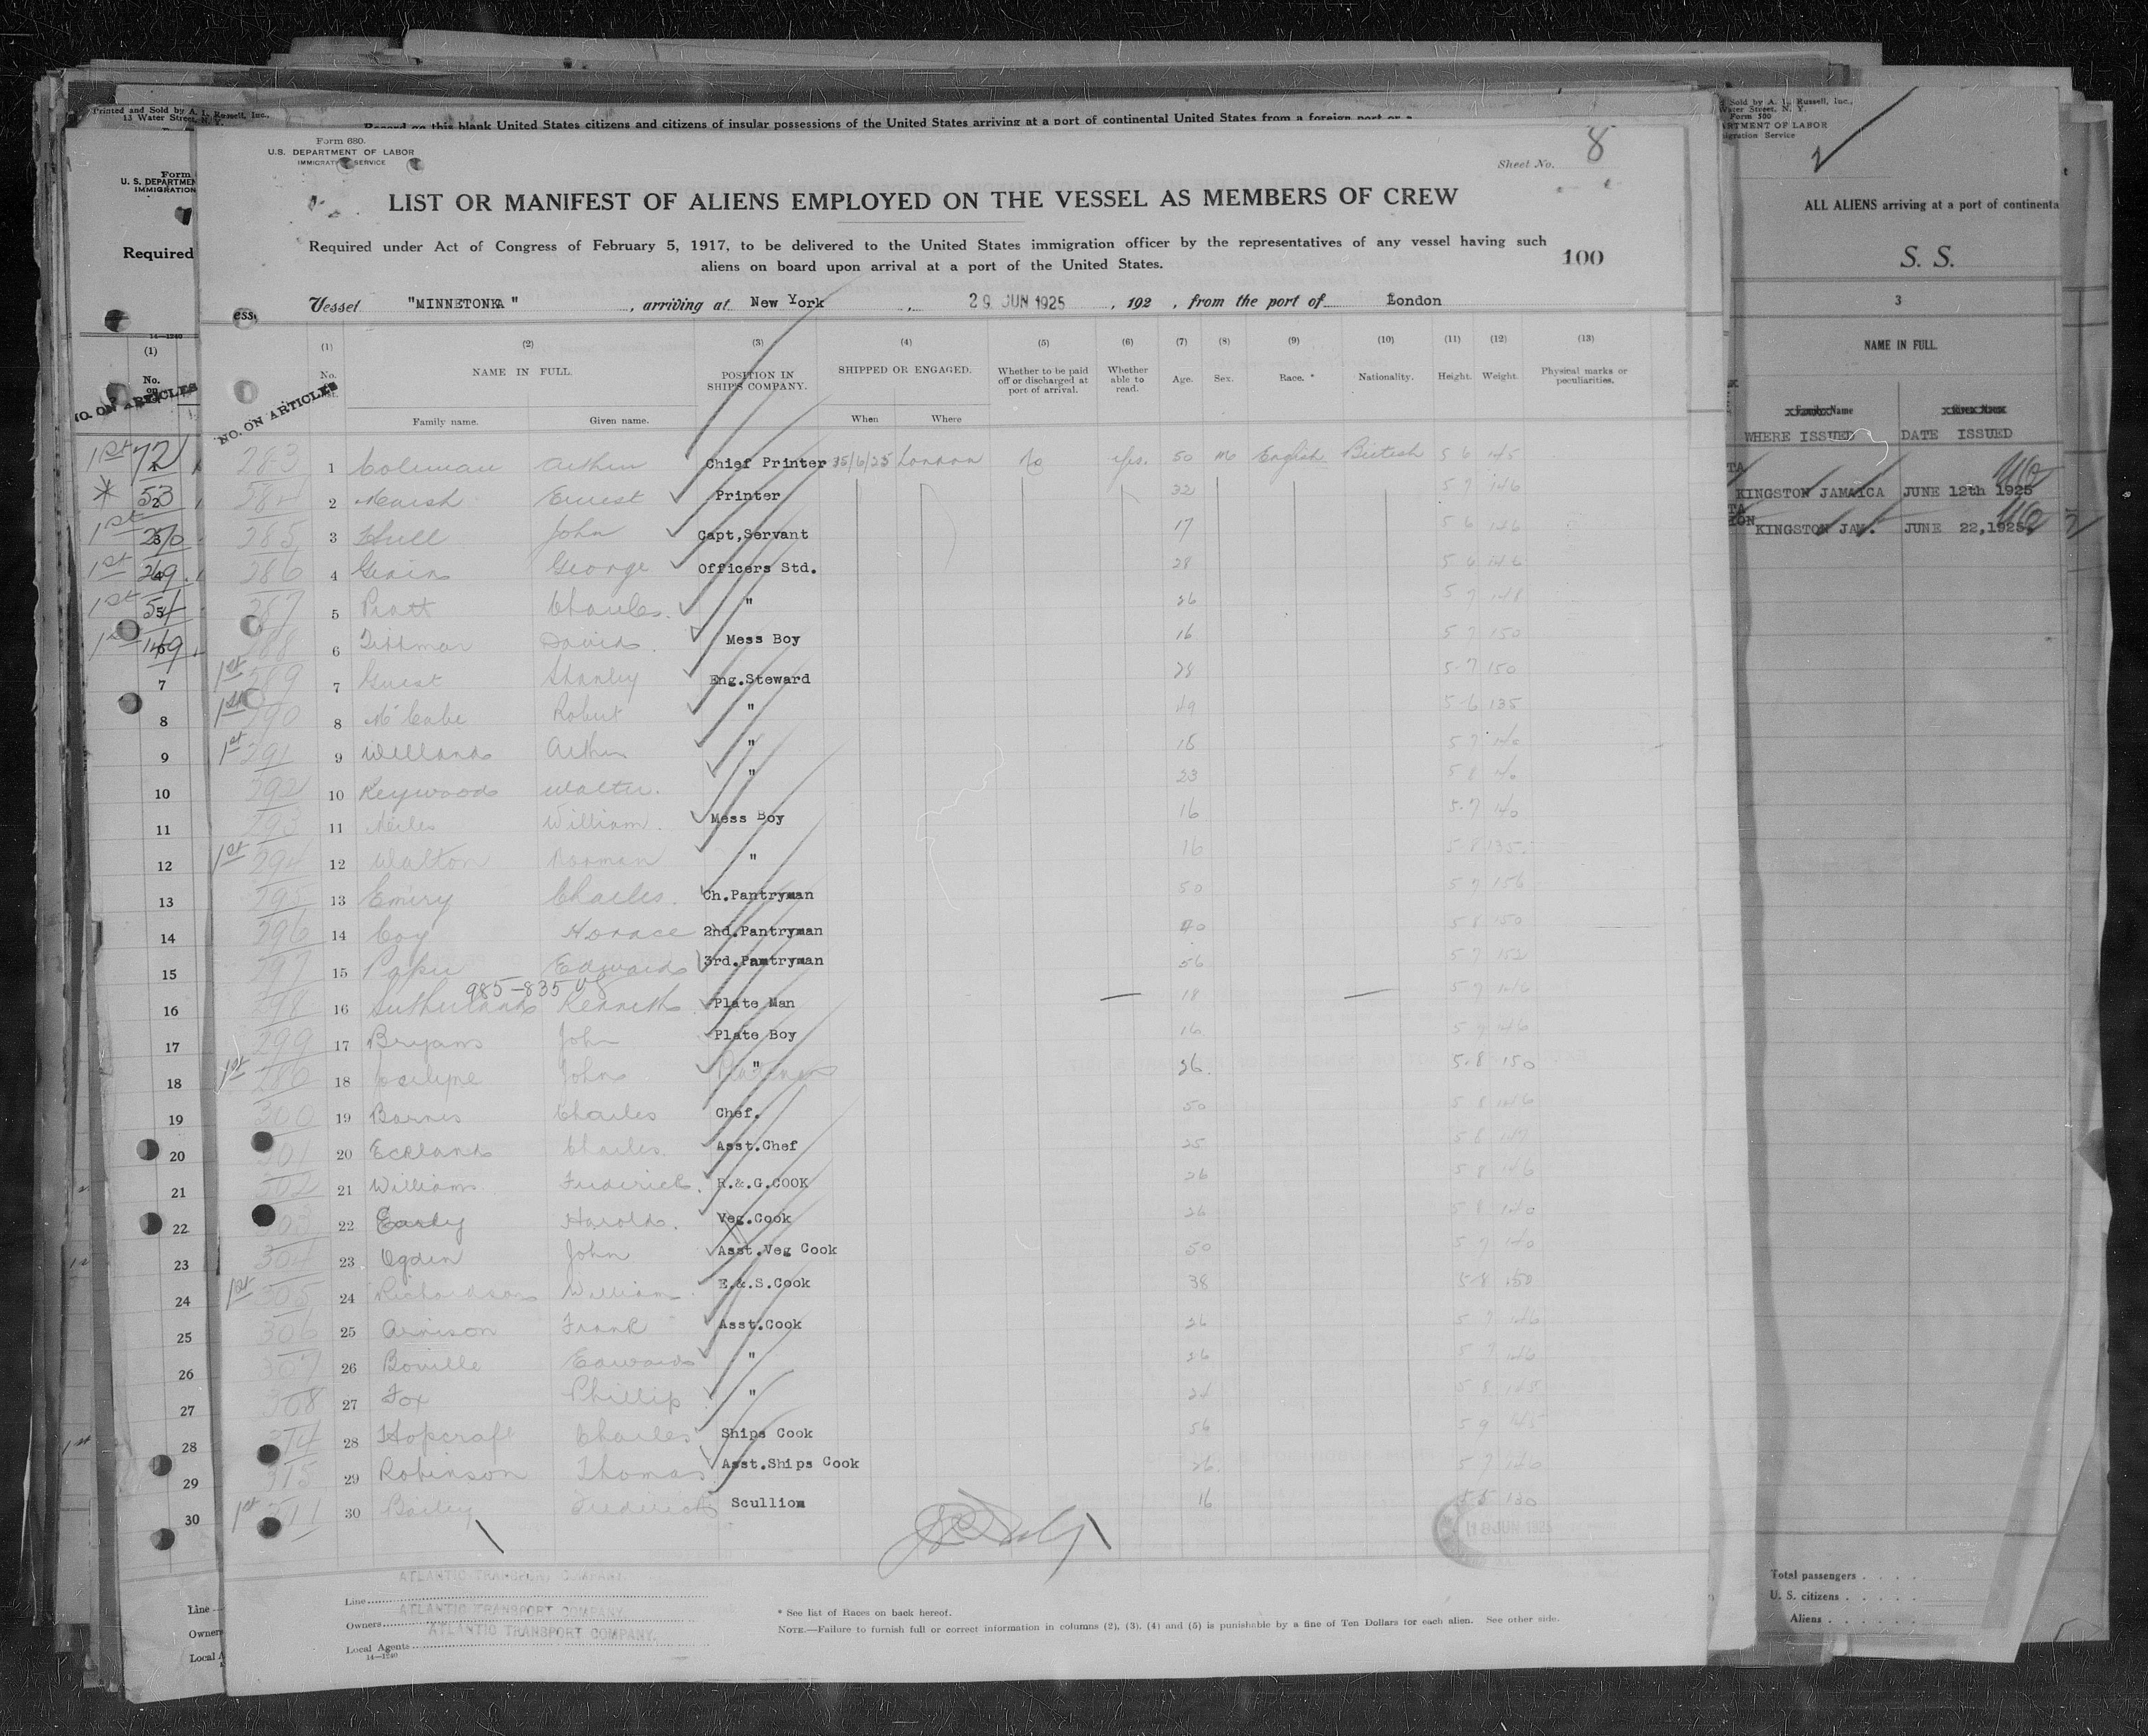 Printed and Sold by A. L. Russell, Inc.,
13 Water Street, N. Y.
Record on this blank United States citizens and citizens of insular possessions of the United States arriving at a port of continental United States from a foreign port or a
Form 680.
U. S. DEPARTMENT OF LABOR
IMMIGRATION SERVICE
Sheet No. 8
LIST OR MANIFEST OF ALIENS EMPLOYED ON THE VESSEL AS MEMBERS OF CREW
Required under Act of Congress of February 5, 1917, to be delivered to the United States immigration officer by the representatives of any vessel having such
aliens on board upon arrival at a port of the United States.
100
Vessel "MINNETONKA", arriving at New York, 29 JUN 1925, 192 , from the port of London
(1) (2) (3) (4) (5) (6) (7) (8) (9) (10) (11) (12) (13)
NO. ON ARTICLES
NAME IN FULL.
Family name. Given name.
POSITION IN SHIP'S COMPANY.
SHIPPED OR ENGAGED.
When Where
Whether to be paid off or discharged at port of arrival.
Whether able to read.
Age. Sex. Race. * Nationality. Height. Weight. Physical marks or peculiarities.
283 1 Coleman Arthur Chief Printer 15/6/25 London No yes. 50 M English British 5 6 145
2 Marsh Ernest Printer 32 5 7 146
285 3 Hull John Capt,Servant 17 5 6 146
286 4 George Officers Std. 28 5 6 146
287 5 Pratt Charles. " 26 5 7 148
288 6 Dittmar David Mess Boy 16 5 7 150
1st 289 7 Guest Stanley Eng.Steward 28 5-7 150
1st 290 8 McCabe Robert " 49 5-6 135
1st 291 9 Arthur " 18 5 7 140
292 10 Keywood Walter. " 23 5 8
293 11 William. Mess Boy 16 5-7 140
1st 294 12 Walton Norman " 16 5 8 135
295 13 Emery Charles. Ch.Pantryman 50 5 7 156
296 14 Coy Horace 2nd.Pantryman 40 5 8 150
297 15 Edward 3rd.Pantryman 56 5 7 152
985-835
298 16 Sutherland Kenneth Plate Man 18 5 7 146
299 17 Bryans John Plate Boy 16 146
1st 280 18 Joselyne John " 26. 5-8 150
300 19 Barnes Charles Chef. 50 5 8 146
301 20 Eckland Charles. Asst.Chef 25 5 8 147
302 21 Williams Frederick. R.&.G.COOK 26 5 8 146
303 22 Easly Harold. Veg.Cook 26 5 8 140
304 23 Ogden John Asst.Veg Cook 50 5 7 140
1st 305 24 Richardson William E.&.S.Cook 38 5-8 150
306 25 Arnison Frank Asst.Cook 26 5 7 146
307 26 Boville Edward " 26 5 7 146
308 27 Fox Phillip " 24 5 8 148
314 28 Hopcraft Charles Ships Cook 56 5 9 145
315 29 Robinson Thomas Asst.Ships Cook 26. 5 7 140
1st 311 30 Bailey Frederick Scullion 16 5 5 130
18 JUN 1925
Line ATLANTIC TRANSPORT COMPANY.
Owners ATLANTIC TRANSPORT COMPANY.
Local Agents ATLANTIC TRANSPORT COMPANY.
14-1240
* See list of Races on back hereof.
NOTE.—Failure to furnish full or correct information in columns (2), (3), (4) and (5) is punishable by a fine of Ten Dollars for each alien. See other side.
Form
U. S. DEPARTMEN
IMMIGRATION
Required
14-1240
(1)
No. on
1st 72
* 53
1st 270
1st 269
1st 54
1st 149
7
8
9
10
11
12
13
14
15
16
17
18
19
20
21
22
23
24
25
26
27
28
29
30
Line
Owners
Local A
Sold by A. L. Russell, Inc.,
Water Street, N. Y.
Form 500
ARTMENT OF LABOR
migration Service
ALL ALIENS arriving at a port of continenta
S. S.
3
NAME IN FULL.
Family Name
WHERE ISSUED DATE ISSUED
KINGSTON JAMAICA JUNE 12th 1925
KINGSTON JAM. JUNE 22,1925
Total passengers
U. S. citizens
Aliens